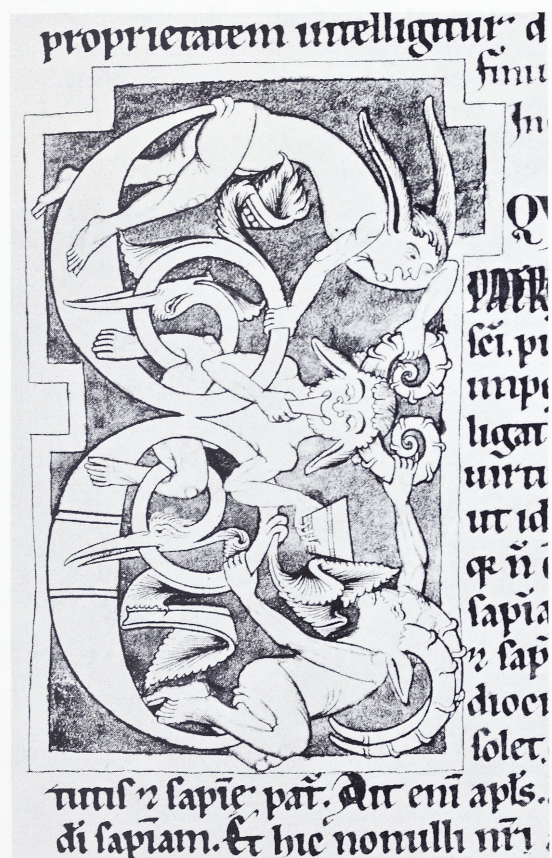 proprietatem intelligitur d
QV
PATR
sc̄i. pr
impe
ligat
uirtu
ut id
sapīa
⁊ sap
dioci
solet.
tutis ⁊ sapīe pat̄. Att enī apl̄s.
dī sapīam. Et hic nonulli nr̄i